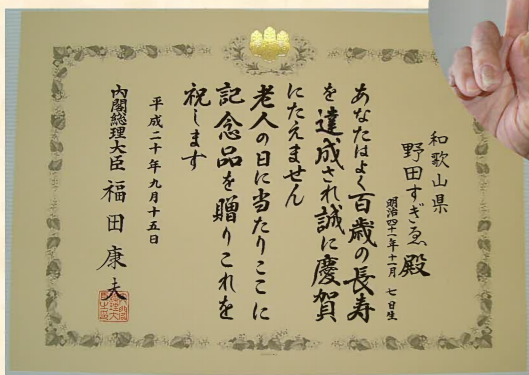 和歌山県
野田すぎゑ殿
明治四十一年十一月七日生
あなたはよく百歳の長寿
を達成され誠に慶賀
にたえません
老人の日に当たりここに
記念品を贈りこれを
祝します
平成二十年九月十五日
内閣総理大臣 福田康夫